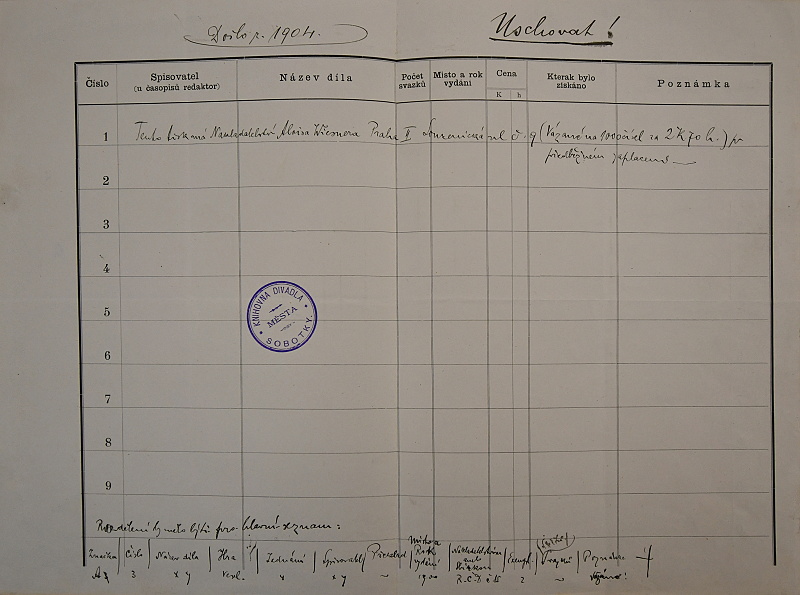 Došlo r. 1904.
Uschovat!
Číslo
Spisovatel
(u časopisů redaktor)
Název díla
Počet
svazků
Místo a rok
vydání
Cena
K h
Kterak bylo
získáno
Poznámka
1 Tento tisk má Nakladatelství Aloisa Wiesnera Praha II ul. č. 9 (Vázané na 1000 čísel za 2 K 70 h.) po
předběžném zaplacení
2
3
4
5
KNIHOVNA DIVADLA
MĚSTA
SOBOTKY
6
7
8
9
Rozdělení by mělo býti pro hlavní seznam:
Značka Číslo Název díla Hra Jednání Spisovatel Překlad Místo a Rok vydání Nakladatelství Poznámka
3 x y x y 1900 2